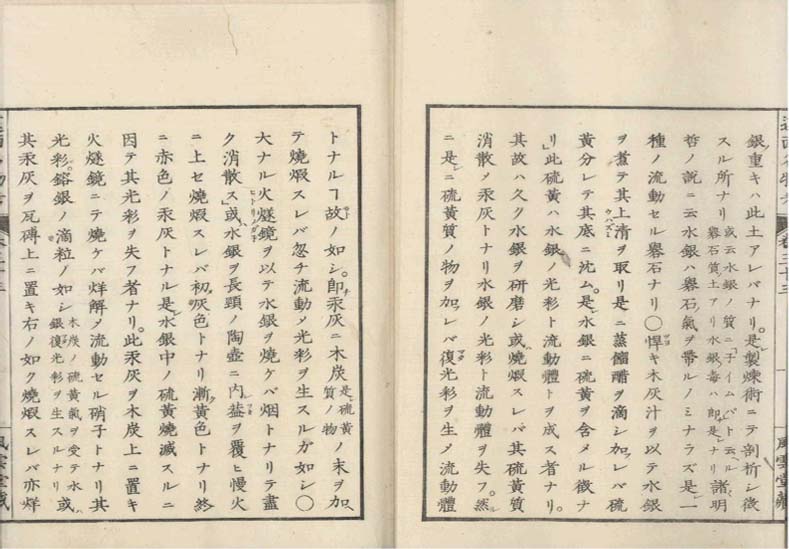 銀重キハ此土アレバナリ。是製煉術ニテ剖析シ徴
スル所ナリ或云水銀ノ質ニ「チイムパトト云ヘル
礜石質土アリ水銀ノ毒ハ即是ナリ諸明
哲ノ説ニ云水銀ハ礜石ノ氣ヲ帶ルノミナラズ是一
種ノ流動セル礜石ナリ〇悍キ木灰汁ヲ以テ水銀
ヲ煮テ其上清ヲ取リ是ニ蒸餾醋ヲ滴シ加レバ硫
黄分レテ其底ニ沈ム。是水銀ニ硫黄ヲ含メル徴ナ
リ」此硫黄ハ水銀ノ光彩ト流動體トヲ成ス者ナリ。
其故ハ久ク水銀ヲ研磨シ或ハ燒煆スレバ其硫黄質
消散メ汞灰トナリ水銀ノ光彩ト流動體ヲ失フ。然
ニ是ニ硫黄質ノ物ヲ加レバ復光彩ヲ生メ流動體
風雲堂藏
トナルヿ故ノ如シ。即汞灰ニ木炭是レ硫黄質ノ物ノ末ヲ加
テ燒煆スレバ忽チ流動メ光彩ヲ生スルガ如シ〇
大ナル火燧鏡ヲ以テ水銀ヲ燒ケバ烟トナリテ盡
ク消散ス」或ハ水銀ヲ長頸ノ陶壺ニ内レ葢ヲ覆ヒ慢火
ニ上セ燒煆スレバ初メ灰色トナリ漸ク黄色トナリ終
ニ赤色ノ汞灰トナル是レ水銀中ノ硫黄燒滅スルニ
因テ其光彩ヲ失フ者ナリ。此汞灰ヲ木炭上ニ置キ
火燧鏡ニテ燒ケバ烊解メ流動セル硝子トナリ其
光彩。鎔銀ノ滴粒ノ如シ木炭ノ硫黄氣ヲ受テ水銀復光彩ヲ生スルナリ或ハ
其汞灰ヲ瓦磚上ニ置キ右ノ如ク燒煆スレバ亦烊
風雲堂藏